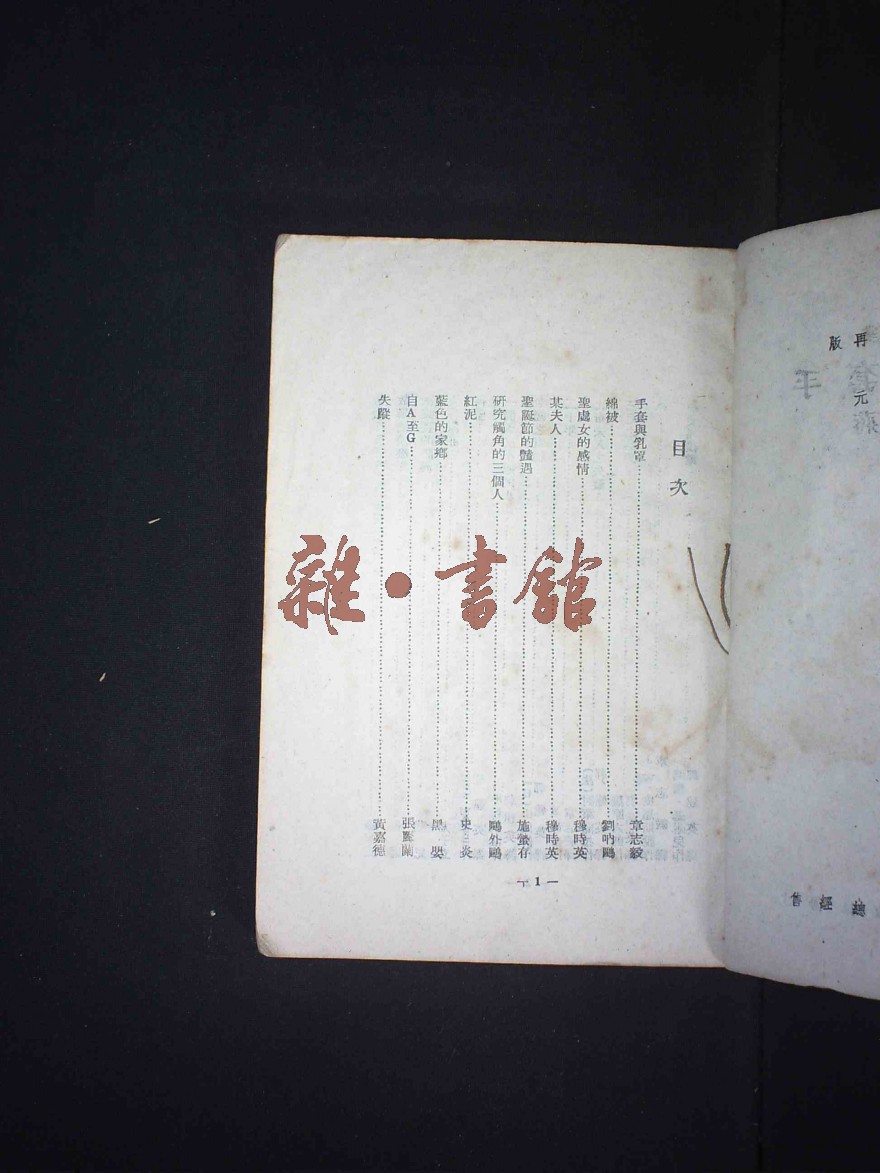 再版
元
總經售
目次
手套與乳罩……章志毅
綿被……劉吶鷗
聖處女的感情……穆時英
某夫人……穆時英
聖誕節的豔遇……施蟄存
研究觸角的三個人……鷗外鷗
紅泥……史炎
藍色的家鄉……黑嬰
自A至G……張麗蘭
失蹤……黃嘉德
— 1 —
雜·書館